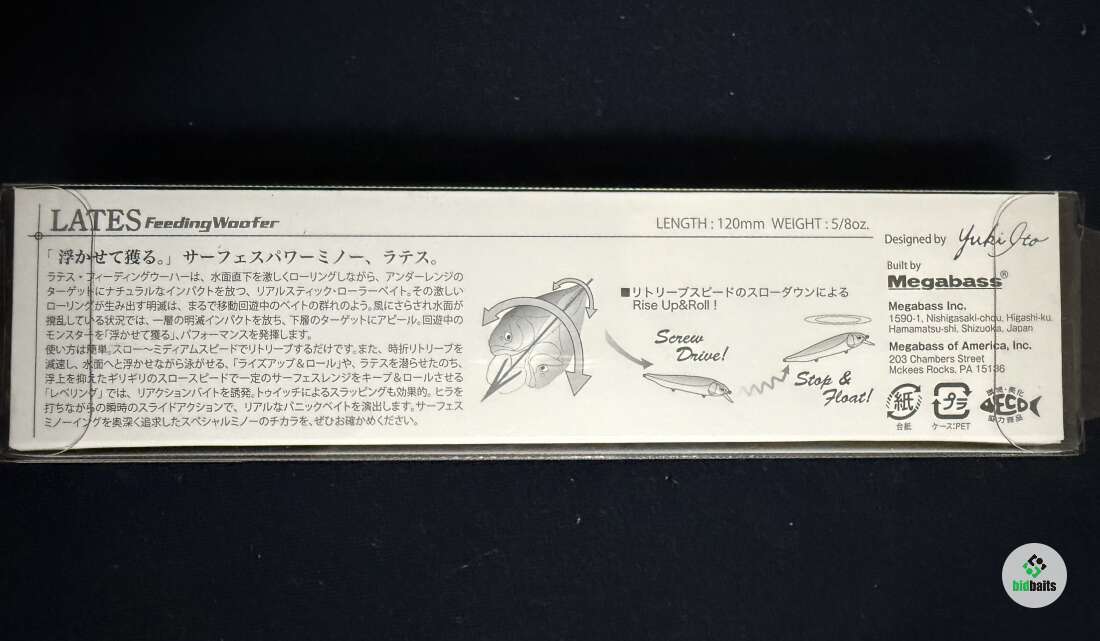 LATES FeedingWoofer
LENGTH : 120mm WEIGHT : 5/8oz.
「浮かせて獲る。」サーフェスパワーミノー、ラテス。
ラテス・フィーディングウーハーは、水面直下を激しくローリングしながら、アンダーレンジの
ターゲットにナチュラルなインパクトを放つ、リアルスティック・ローラーベイト。その激しい
ローリングが生み出す明滅は、まるで移動回遊中のベイトの群れのよう。風にさらされ水面が
撹乱している状況では、一層の明滅インパクトを放ち、下層のターゲットにアピール。回遊中の
モンスターを「浮かせて獲る」、パフォーマンスを発揮します。
使い方は簡単。スロー〜ミディアムスピードでリトリーブするだけです。また、時折リトリーブを
減速し、水面へと浮かせながら泳がせる、「ライズアップ＆ロール」や、ラテスを潜らせたのち、
浮上を抑えたギリギリのスロースピードで一定のサーフェスレンジをキープ＆ロールさせる
「レベリング」では、リアクションバイトを誘発。トゥイッチによるスラッピングも効果的。ヒラを
打ちながらの瞬時のスライドアクションで、リアルなパニックベイトを演出します。サーフェス
ミノーイングを奥深く追求したスペシャルミノーのチカラを、ぜひお確かめください。
■リトリーブスピードのスローダウンによる
Rise Up&Roll！
Screw
Drive!
Stop &
Float!
Designed by Yuki Ito
Built by
Megabass®
Megabass Inc.
1590-1, Nishigasaki-chou, Higashi-ku,
Hamamatsu-shi, Shizuoka, Japan
Megabass of America, Inc.
203 Chambers Street
Mckees Rocks, PA 15136
紙
台紙
プラ
ケース:PET
環境・美化
ECO
協力商品
bidbaits